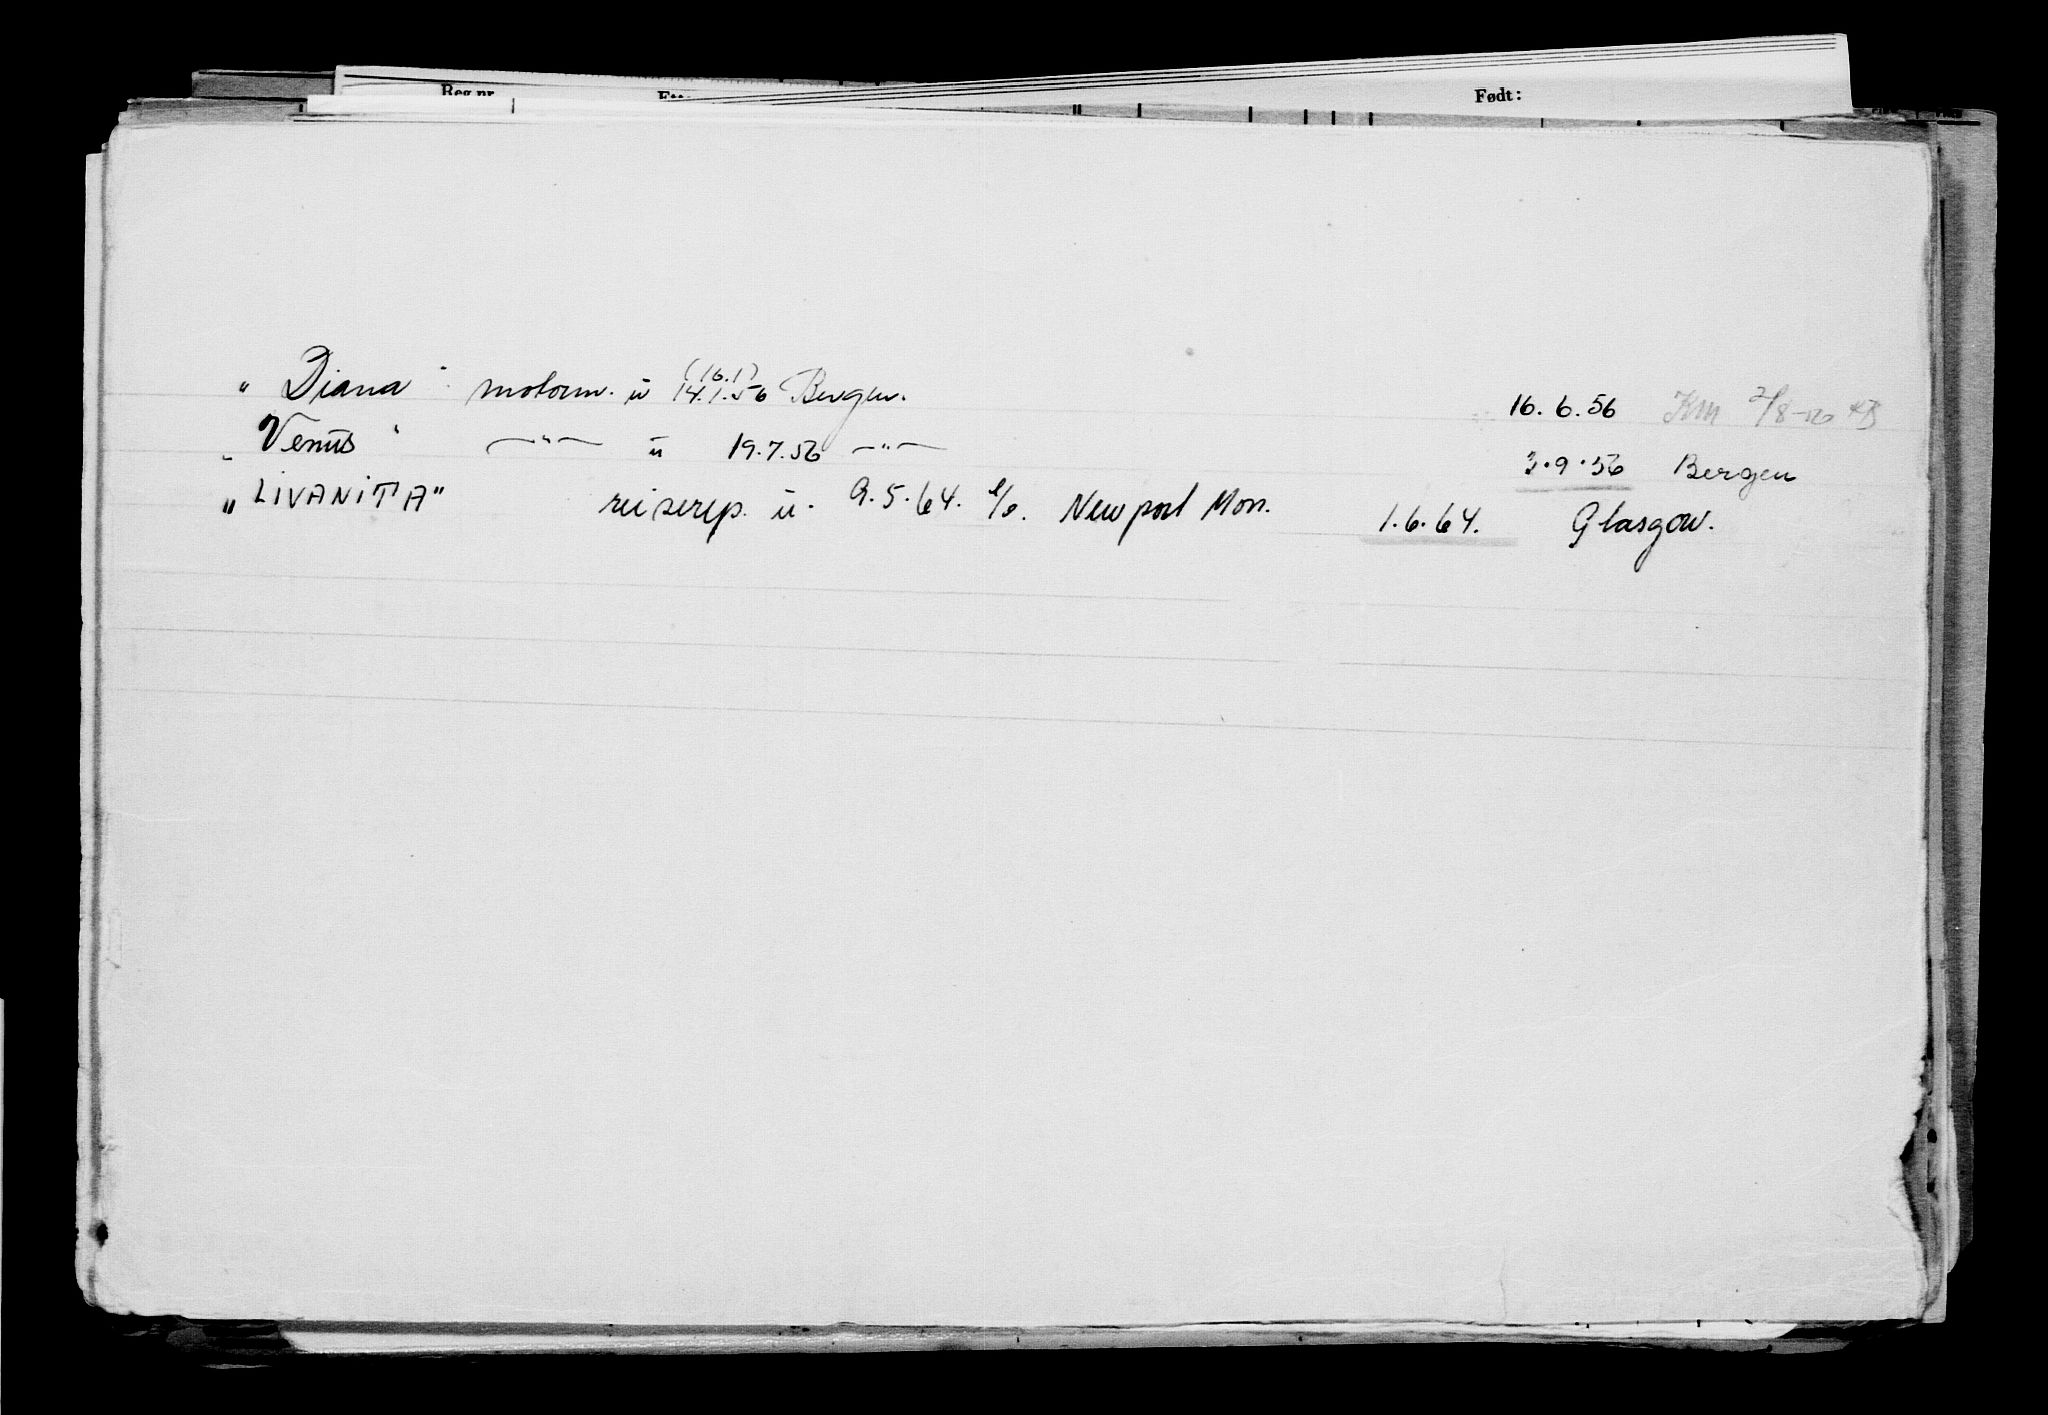 Reg.nr. Født:
(16.1)
"Diana" motorm. u 14.1.56 Bergen. 16.6.56 Km 2/8-56
"Venus" —"— u 19.7.56 —"— 3.9.56 Bergen
"LIVANITA" reiserep. u. 9.5.64. Newport Mon. 1.6.64. Glasgow.